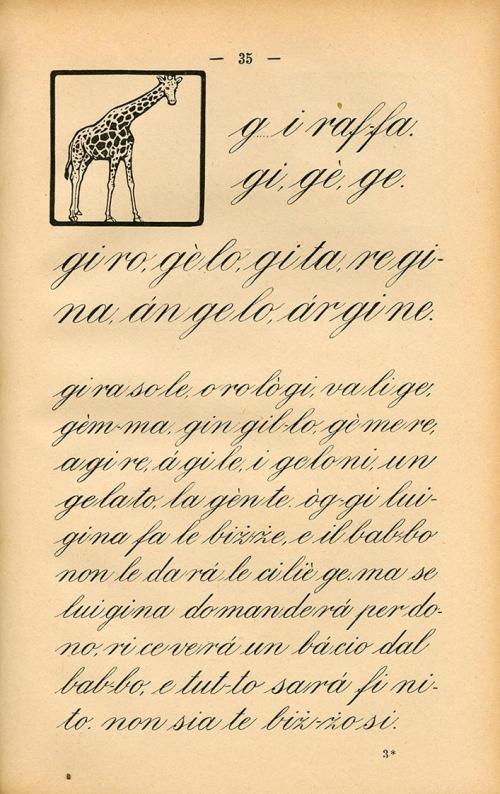 — 35 —
g i raf-fa.
gi, gè, ge.
gi ro, gè lo, gi ta, re gi-
na, án ge lo, ár gi ne.
gi ra so le, o ro lò gi, va li ge,
gèm-ma, gin gil-lo, gè me re,
a gi re, á gi le, i ge lo ni, un
ge la to, la gèn te. òg-gi lui-
gi na fa le biż-że, e il bab-bo
non le da rá le ci liè ge. ma se
lui gi na do man de rá per do-
no, ri ce ve rá un bá cio dal
bab-bo, e tut-to sa rá fi ni-
to. non sia te biż-żo si.
3*